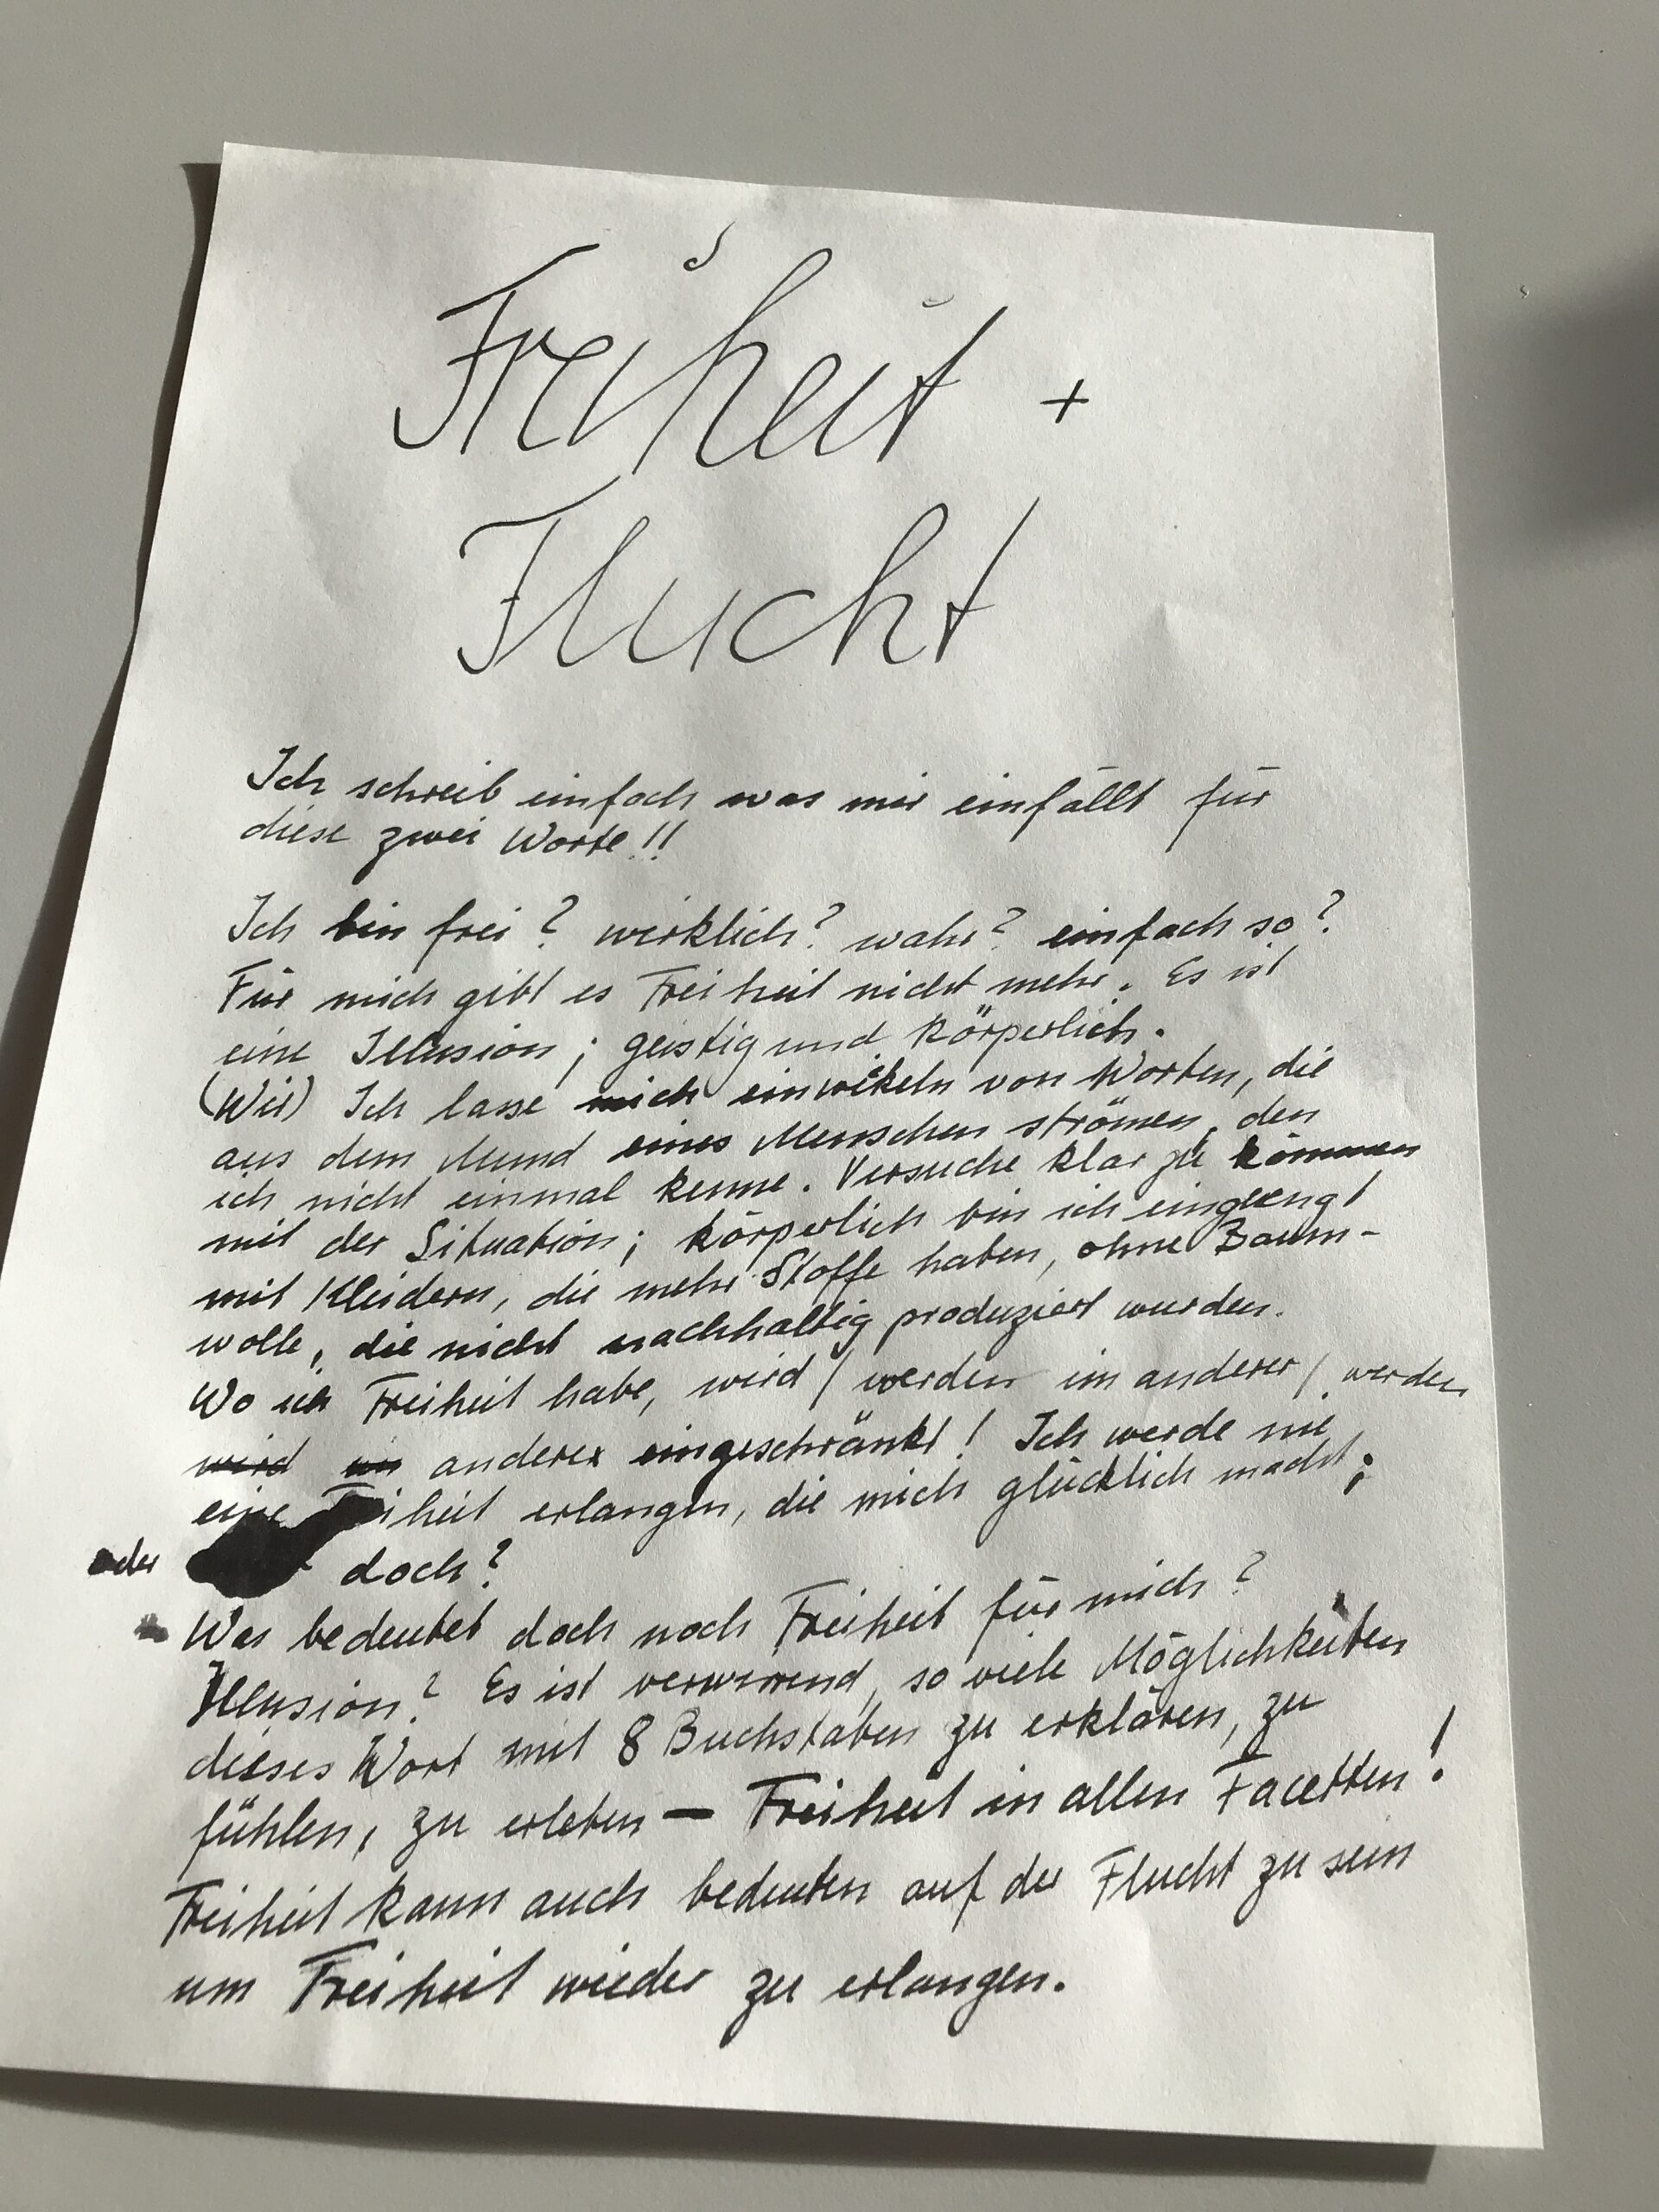 Freiheit +
Flucht
Ich schreib einfach was mir einfällt für
diese zwei Worte!!
Ich bin frei? wirklich? wahr? einfach so?
Für mich gibt es Freiheit nicht mehr. Es ist
eine Illusion; geistig und körperlich.
(Wir) Ich lasse mich einwikeln von Worten, die
aus dem Mund eines Menschen strömen, den
ich nicht einmal kenne. Versuche klar zu kommen
mit der Situation; körperlich bin ich eingeengt
mit Kleidern, die mehr Stoffe haben, ohne Baum-
wolle, die nicht nachhaltig produziert wurden.
Wo ich Freiheit habe, wird / werden im anderer / werden
wird anderer eingeschränkt! Ich werde nie
eine Freiheit erlangen, die mich glücklich macht;
oder doch?
Was bedeutet doch noch Freiheit für mich?
Illusion? Es ist verwirrend, so viele Möglichkeiten
dieses Wort mit 8 Buchstaben zu erklären, zu
fühlen, zu erleben — Freiheit in allen Facetten!
Freiheit kann auch bedeuten auf der Flucht zu sein
um Freiheit wieder zu erlangen.